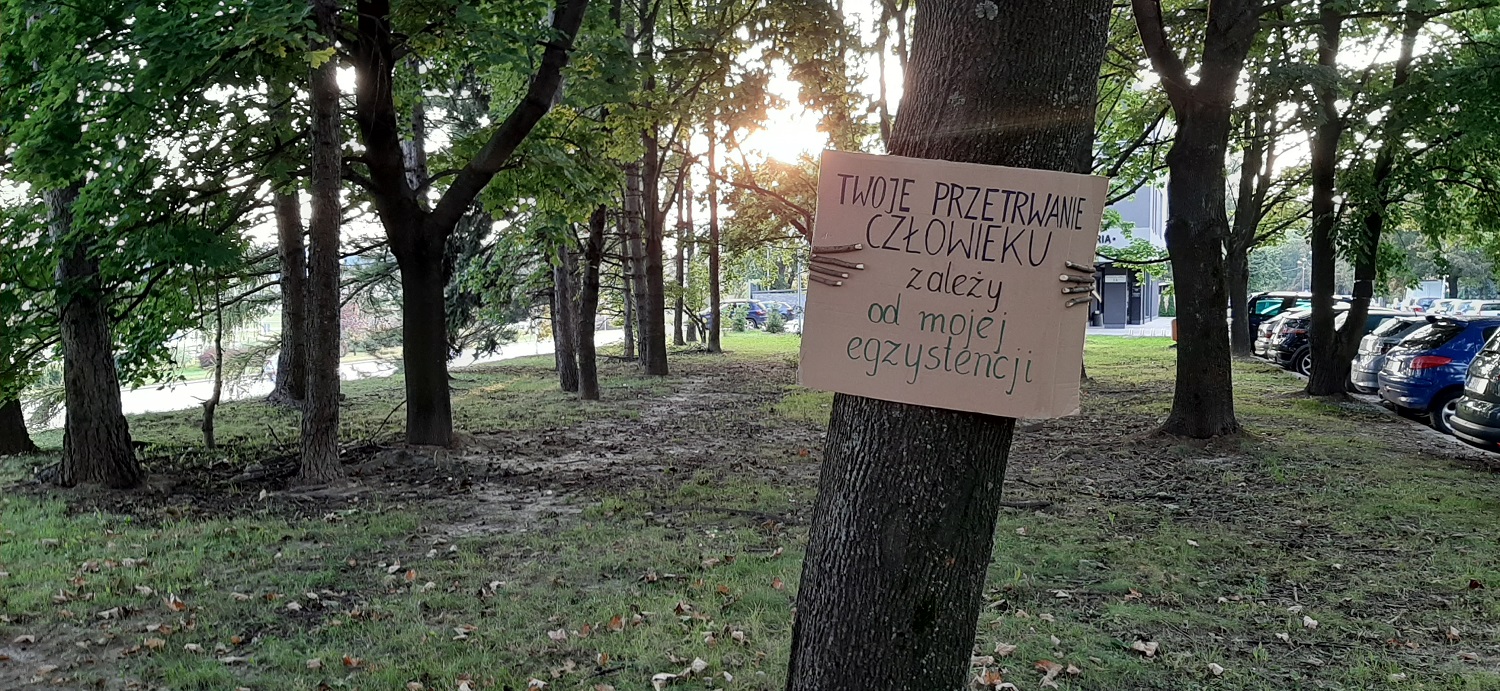 TWOJE PRZETRWANIE
CZŁOWIEKU
zależy
od mojej
egzystencji